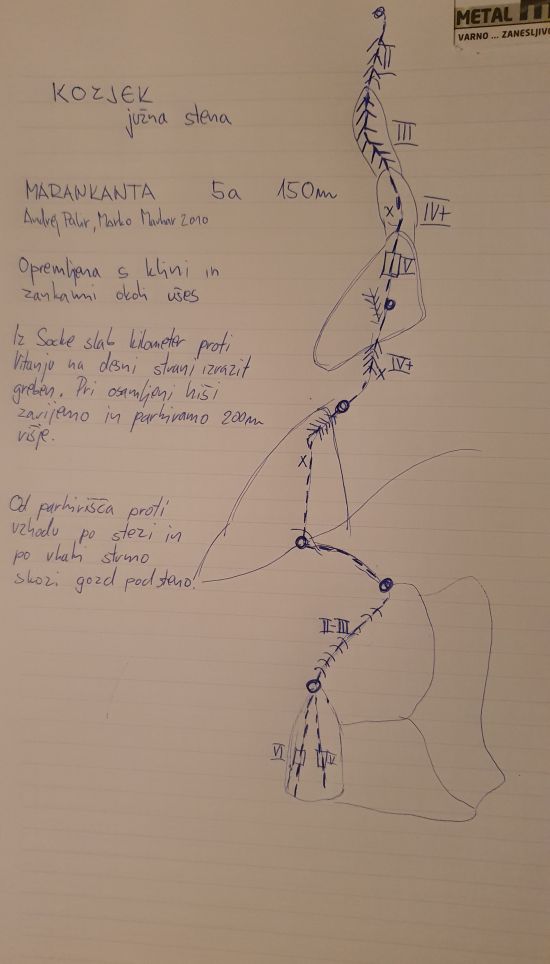 METAL
VARNO ... ZANESLJIVO
KOZJEK
južna stena
MARANKANTA 5a 150m
Andrej Pakir, Marko Mavhar 2010
Opremljena s klini in
zankami okoli ušes
Iz Socke slab kilometer proti
Vitanju na desni strani izrazit
greben. Pri osamljeni hiši
zavijemo in parkiramo 200m
višje.
Od parkirišča proti
vzhodu po stezi in
po vlaki strmo
skozi gozd pod steno!
II
III
IV+
V
IV+
X
X
X
II-III
VI
V